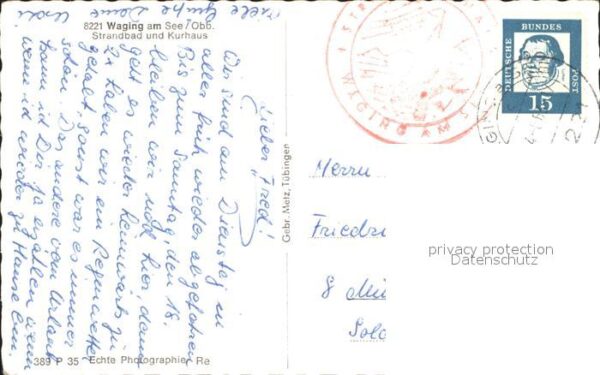 8221 Waging am See/Obb.
Strandbad und Kurhaus
Lieber Fred!
Wir sind am Dienstag in
aller früh wieder abgefahren
Bis zum Samstag, den 16.
bleiben wir noch hier, dann
geht es wieder heimwärts zu
Zu haben wir ein Regenwetter
gehabt, sonst war es immer
schön. Das andere vom Urlaub
kann ich Dir ja erzählen wenn
ich wieder zu Hause bin.
Viele Grüße Deine
Gebr. Metz, Tübingen
389 P 35 Echte Photographie Re
WAGING AM S
DEUTSCHE BUNDES POST
15
Herrn
Friedri
8 Mü
privacy protection
Datenschutz